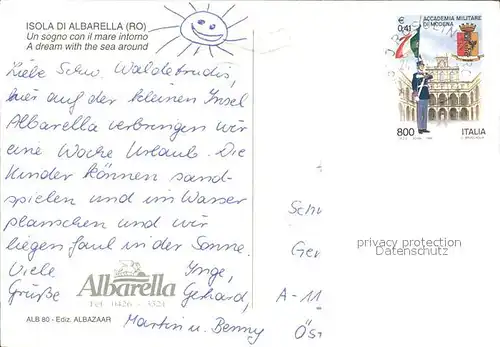 ISOLA DI ALBARELLA (RO)
Un sogno con il mare intorno
A dream with the sea around
Liebe Schw. Waldetrudis,
hier auf der kleinen Insel
Albarella verbringen wir
eine Woche Urlaub. Die
Kinder können sand-
spielen und im Wasser
planschen und wir
liegen faul in der Sonne.
Viele Inge,
Grüße Gerhard,
Martin u. Benny
Albarella
Tel. 0426 - 3321
ALB 80 - Ediz. ALBAZAAR
€ 0,41
ACCADEMIA MILITARE
DI MODENA
800 ITALIA
privacy protection
Datenschutz
Sch
Ger
A-11
Ös